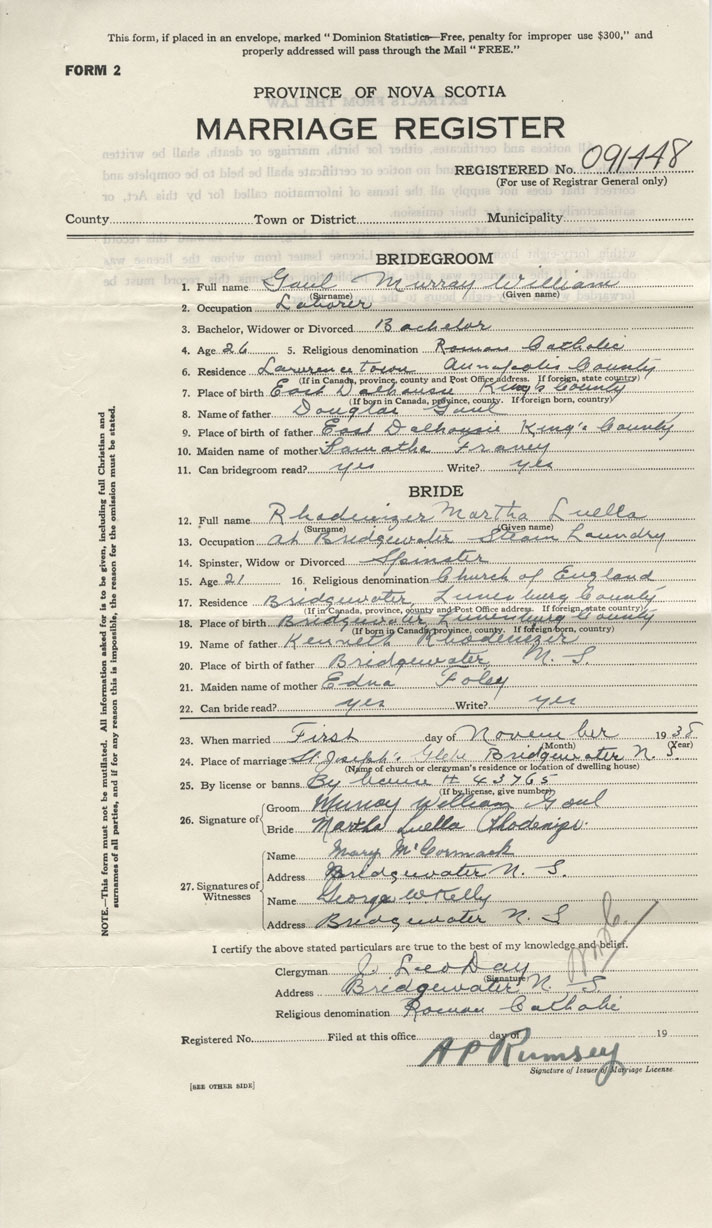 This form, if placed in an envelope, marked "Dominion Statistics—Free, penalty for improper use $300," and
properly addressed will pass through the Mail "FREE."
FORM 2
PROVINCE OF NOVA SCOTIA
MARRIAGE REGISTER
REGISTERED No. 091448
(For use of Registrar General only)
County Town or District Municipality
BRIDEGROOM
1. Full name Gaul Murray William
(Surname) (Given name)
2. Occupation Laborer
3. Bachelor, Widower or Divorced Bachelor
4. Age 26 5. Religious denomination Roman Catholic
6. Residence Lawrencetown Annapolis County
(If in Canada, province, county and Post Office address. If foreign, state country)
7. Place of birth East Dalhousie King's County
(If born in Canada, province, county. If foreign born, country)
8. Name of father Douglas Gaul
9. Place of birth of father East Dalhousie King's County
10. Maiden name of mother Samatha Franey
11. Can bridegroom read? yes Write? yes
BRIDE
12. Full name Rhodenizer Martha Luella
(Surname) (Given name)
13. Occupation at Bridgewater Steam Laundry
14. Spinster, Widow or Divorced Spinster
15. Age 21 16. Religious denomination Church of England
17. Residence Bridgewater, Lunenburg County
(If in Canada, province, county and Post Office address. If foreign, state country)
18. Place of birth Bridgewater, Lunenburg County
(If born in Canada, province, county. If foreign born, country)
19. Name of father Kenneth Rhodenizer
20. Place of birth of father Bridgewater, N. S.
21. Maiden name of mother Edna Foley
22. Can bride read? yes Write? yes
23. When married First day of November 1938
(Month) (Year)
24. Place of marriage St. Joseph's Glebe Bridgewater N. S.
(Name of church or clergyman's residence or location of dwelling house)
25. By license or banns By license # 43765
(If by license, give number)
26. Signature of
Groom Murray William Gaul
Bride Martha Luella Rhodenizer
27. Signatures of Witnesses
Name Mary McCormack
Address Bridgewater N. S.
Name George W Kelly
Address Bridgewater N. S
I certify the above stated particulars are true to the best of my knowledge and belief.
Clergyman J. Leo Day
(Signature)
Address Bridgewater N. S
Religious denomination Roman Catholic
Registered No. Filed at this office day of 19
A P Rumsey
Signature of Issuer of Marriage License
[SEE OTHER SIDE]
NOTE.—This form must not be mutilated. All information asked for is to be given, including full Christian and
surnames of all parties, and if for any reason this is impossible, the reason for the omission must be stated.